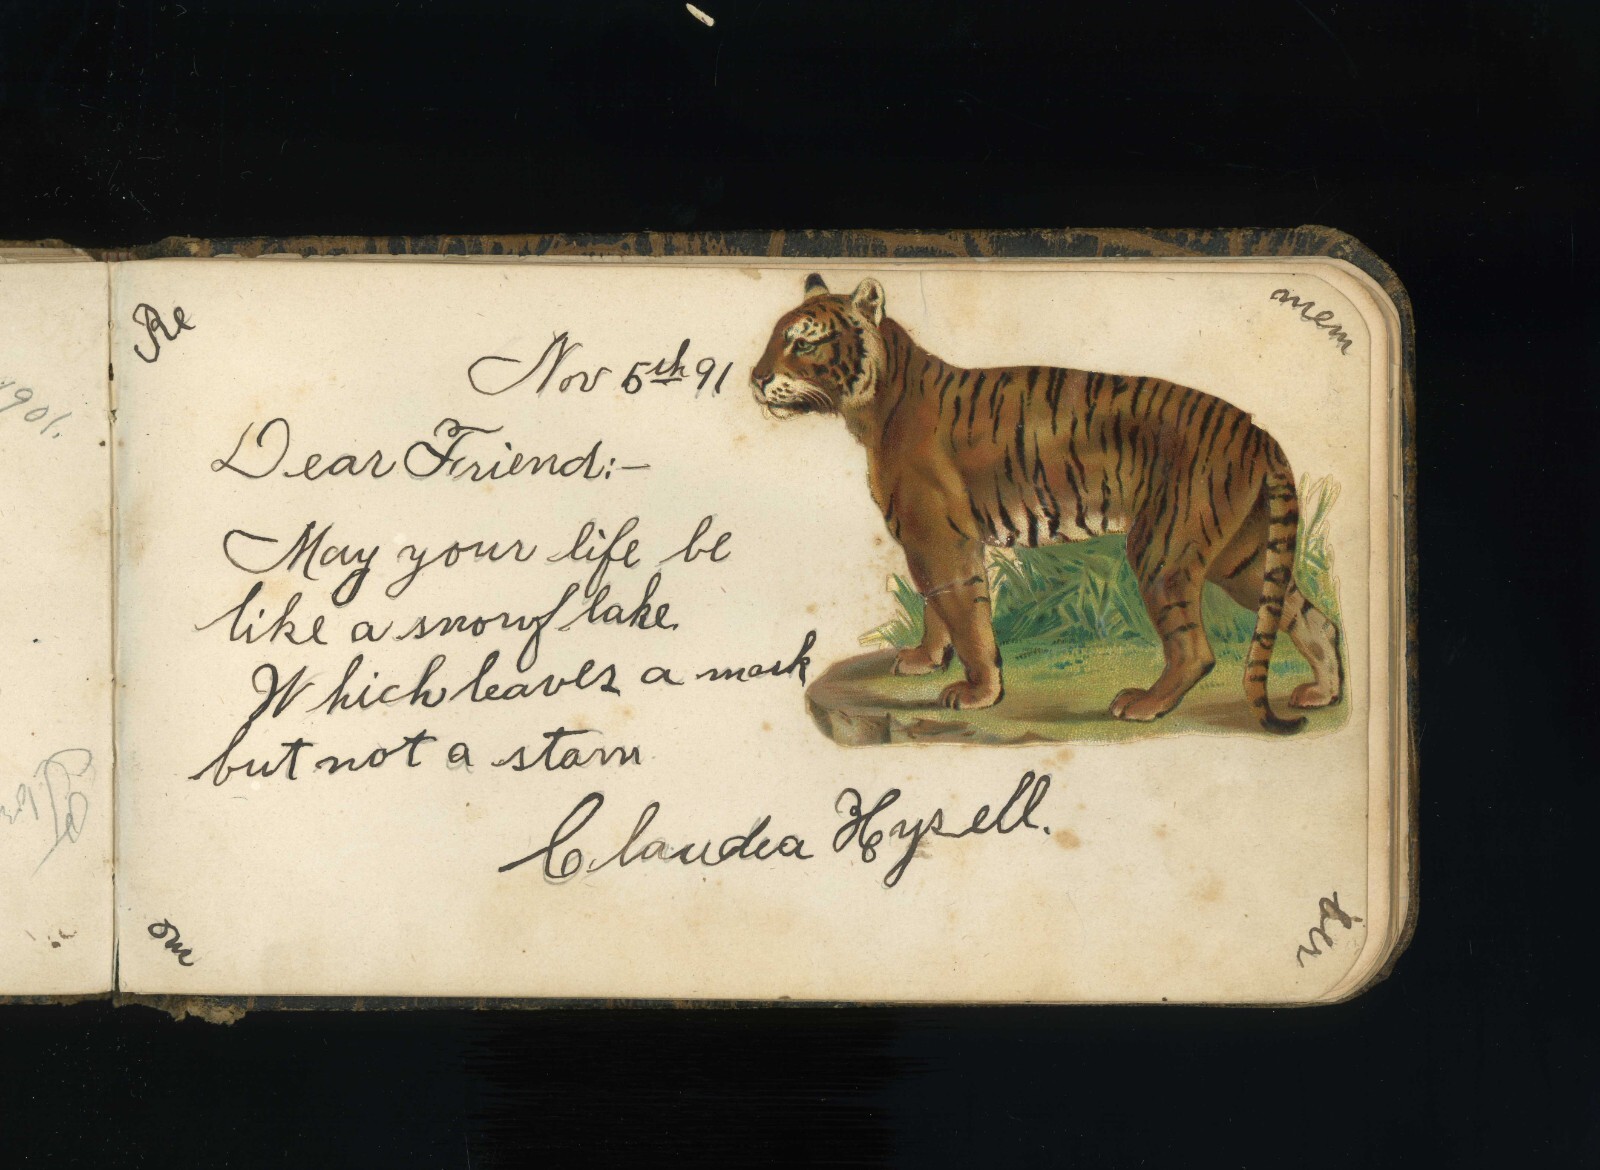 Re
mem
Nov 5th 91
Dear Friend:-
May your life be
like a snowflake
Which leaves a mark
but not a stain
Claudia Hysell.
om
ber
1901.